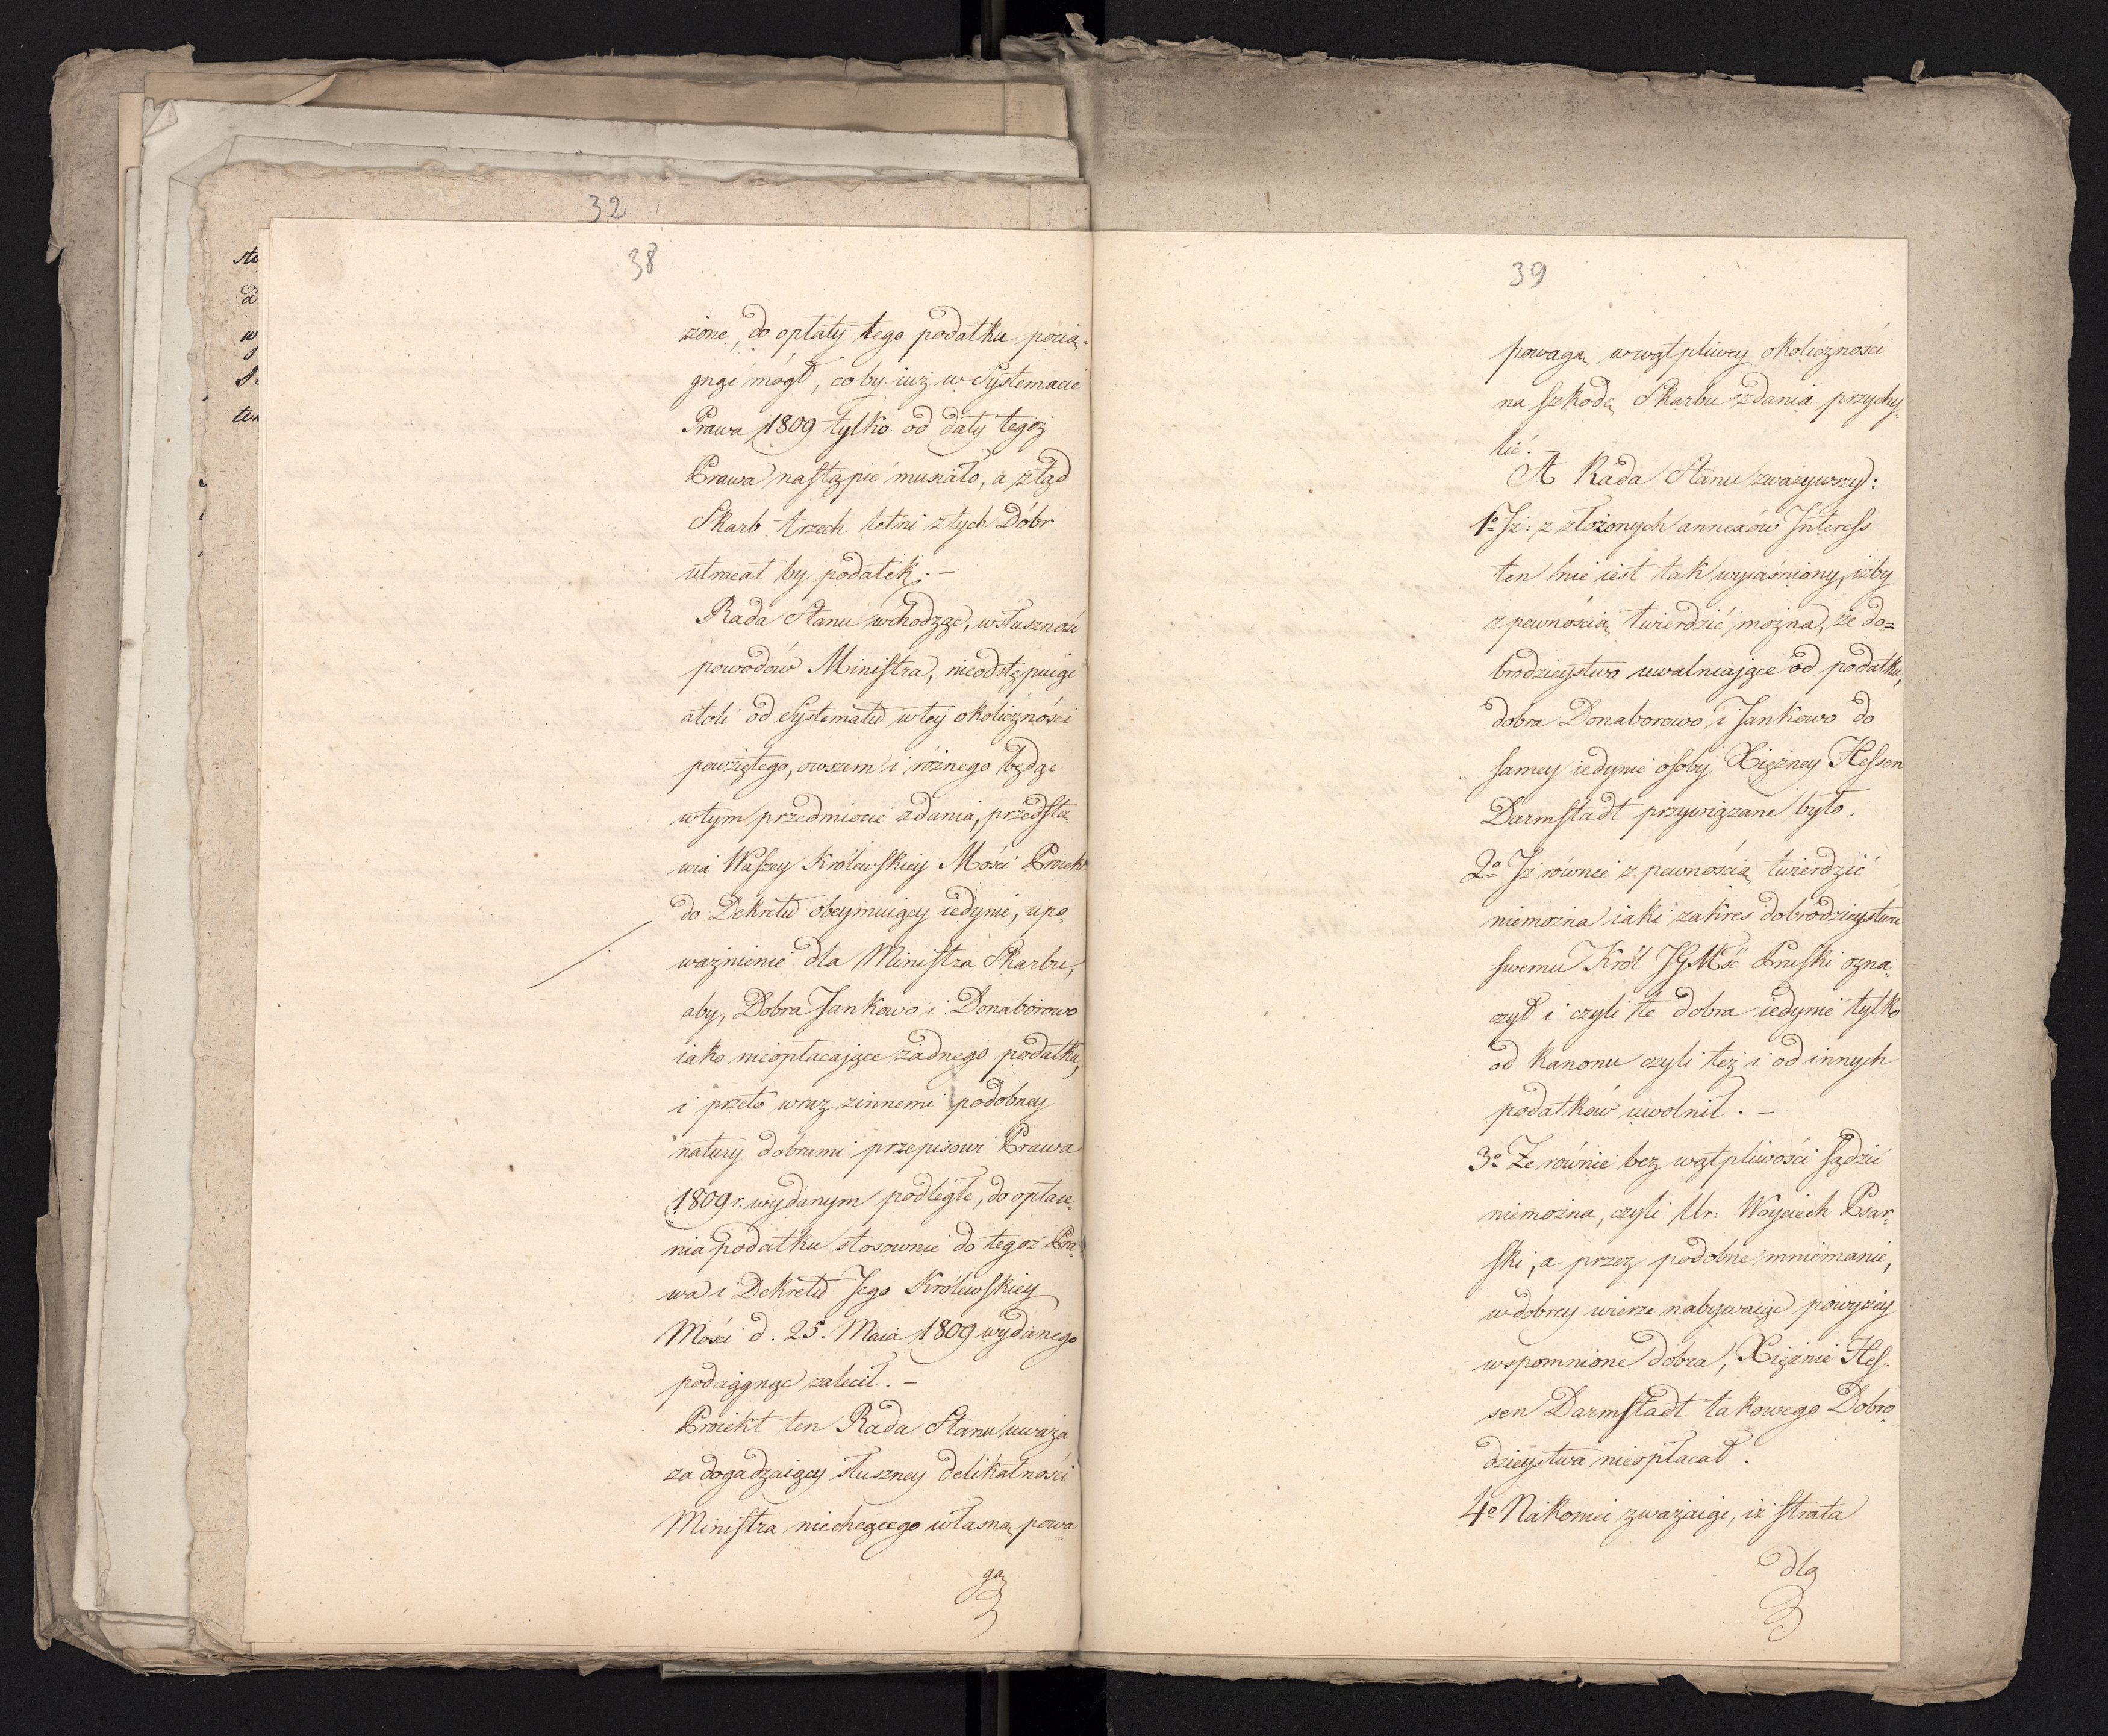 32
38
sto
D
w
S
te
żone, do opłaty tego podatku pocią-
gnąć mógł, coby iuż w Systemacie
Prawa 1809 tylko od daty tegoż
Prawa nastąpić musiało, a ztąd
Skarb trzech letni z tych Dóbr
utracał by podatek. –
Rada Stanu wchodząc, w słuszność
powodów Ministra, nieodstępuiąc
atoli od Systematu w tey okoliczności
powziętego, owszem i różnego będąc
w tym przedmiocie zdania, przedsta-
wia Waszey Królewskiey Mości Proiekt
do Dekretu obeymuiący iedynie, upo-
ważnienie dla Ministra Skarbu,
aby, Dobra Jankowo i Donaborowo
iako nieopłacaiące żadnego podatku,
i przeto wraz zinnemi podobney
natury dobrami przepisowi Prawa
1809 r. wydanym podległe, do opłace-
nia podatku stosownie do tegoż Pra-
wa i Dekretu Jego Królewskiey
Mości d. 25. Maia 1809 wydanego
podciągnąc zalecił. –
Proiekt ten Rada Stanu uważa
za dogadzaiący słuszney delikatności
Ministra niechcącego własną powa-
gą
39
powagą w wątpliwey okoliczności
na szkodę Skarbu zdania przychy-
lić. –
A Rada Stanu zważywszy:
1º Iż: z złożonych annexów Interess
ten nie iest tak wyiaśniony, iżby
z pewnością twierdzić można, że do=
brodzieystwo uwalniaiące od podatku,
dobra Donaborowo i Jankowo do
samey iedynie osoby Xiężney Hessen
Darmstadt przywiązane było.
2º Iż równie z pewnością twierdzić
niemożna iaki zakres dobrodzieystwu
swemu Król JGMść Pruski ozna-
czył i czyli te dobra iedynie tylko
od kanonu czyli też i od innych
podatków uwolnił. –
3º Ze równie bez wątpliwości sądzić
niemożna, czyli Ur: Woyciech Psar-
ski, a przez podobne mniemanie,
w dobrey wierze nabywaiąc powyżey
wspomnione dobra, Xiężnie Hes-
sen Darmstadt takowego Dobro-
dzieystwa nieopłacał.
4º Nakoniec zważaiąc, iż strata
dla